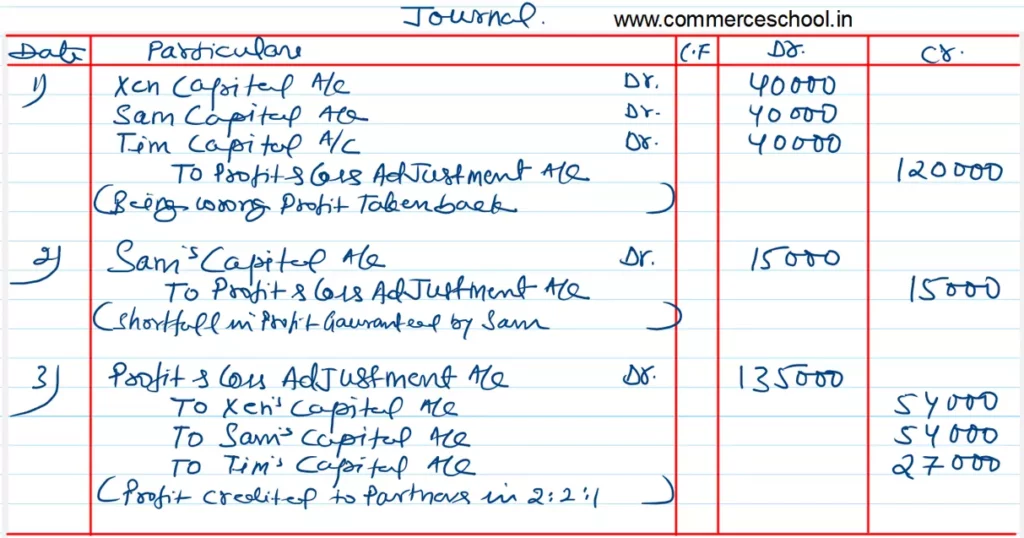 Journal. www.commerceschool.in
Date Particulars C.F Dr. Cr.
1) Xen Capital A/c Dr. 40000
Sam Capital A/c Dr. 40000
Tim Capital A/C Dr. 40000
To Profit & Loss Adjustment A/c 120000
(Being worng Profit Taken back)
2) Sam's Capital A/c Dr. 15000
To Profit & Loss Adjustment A/c 15000
(Shortfall in Profit Gauranteed by Sam)
3) Profit & Loss Adjustment A/c Dr. 135000
To Xen's Capital A/c 54000
To Sam's Capital A/c 54000
To Tim's Capital A/c 27000
(Profit credited to Partners in 2:2:1)